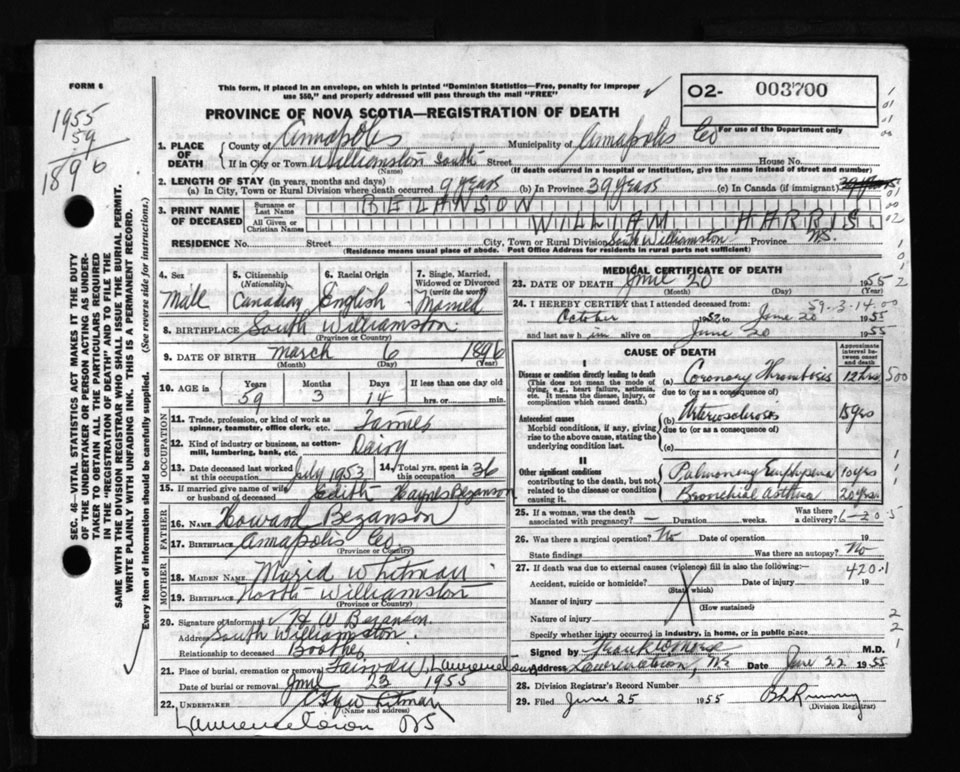 FORM 6
This form, if placed in an envelope, on which is printed "Dominion Statistics—Free, penalty for improper
use $50," and properly addressed will pass through the mail "FREE"
O2- 003700
For use of the Department only
PROVINCE OF NOVA SCOTIA—REGISTRATION OF DEATH
1955
59
1896
1. PLACE OF DEATH
County of Annapolis Municipality of Annapolis Co
If in City or Town Williamston South Street House No.
(Name) (If death occurred in a hospital or institution, give the name instead of street and number)
2. LENGTH OF STAY (in years, months and days)
(a) In City, Town or Rural Division where death occurred 9 years (b) In Province 39 years (c) In Canada (if immigrant)
3. PRINT NAME OF DECEASED
Surname or Last Name BEZANSON
All Given or Christian Names WILLIAM HARRIS
RESIDENCE No. Street City, Town or Rural Division South Williamston Province N.S.
(Residence means usual place of abode. Post Office Address for residents in rural parts not sufficient)
4. Sex Male
5. Citizenship (Nationality) Canadian
6. Racial Origin English
7. Single, Married, Widowed or Divorced (write the word) Married
8. BIRTHPLACE South Williamston
(Province or Country)
9. DATE OF BIRTH March 6 1896
(Month) (Day) (Year)
10. AGE IS Years 59 Months 3 Days 14 If less than one day old hrs. or min.
OCCUPATION
11. Trade, profession, or kind of work as spinner, teamster, office clerk, etc. Farmer
12. Kind of industry or business, as cotton-mill, lumbering, bank, etc. Dairy
13. Date deceased last worked at this occupation July 1953
14. Total yrs. spent in this occupation 36
15. If married give name of wife or husband of deceased Edith Haynes Bezanson
FATHER
16. NAME Howard Bezanson
17. Birthplace Annapolis Co.
(Province or Country)
MOTHER
18. MAIDEN NAME Maria Whitman
19. BIRTHPLACE North Williamston
(Province or Country)
20. Signature of Informant H W Bezanson
Address South Williamston.
Relationship to deceased Brother
21. Place of burial, cremation or removal Fairview, Lawrencetown
Date of burial or removal June 23 1955
22. UNDERTAKER Whitman
(Name and address)
Lawrencetown NS
MEDICAL CERTIFICATE OF DEATH
23. DATE OF DEATH June 20 1955
(Month) (Day) (Year)
24. I HEREBY CERTIFY that I attended deceased from: 59-3-14.00
October 1952 to June 20 1955
and last saw him alive on June 20 1955
CAUSE OF DEATH
Approximate interval between onset and death
I
Disease or condition directly leading to death (a) Coronary Thrombosis 12 hrs
(This does not mean the mode of dying, e.g., heart failure, asthenia, etc. It means the disease, injury, or complication which caused death.)
due to (or as a consequence of)
Antecedent causes (b) Arteriosclerosis
Morbid conditions, if any, giving rise to the above cause, stating the underlying condition last.
due to (or as a consequence of)
(c)
II
Other significant conditions contributing to the death, but not related to the disease or condition causing it.
Pulmonary Emphysema 10 yrs
Bronchial Asthma 20 yrs.
25. If a woman, was the death associated with pregnancy? — Duration weeks. Was there a delivery? 6-20-5
26. Was there a surgical operation? No Date of operation 19
State findings Was there an autopsy? No
27. If death was due to external causes (violence) fill in also the following:— 420.1
Accident, suicide or homicide? Date of injury 19
(State which)
Manner of injury
(How sustained)
Nature of injury
Specify whether injury occurred in industry, in home, or in public place
Signed by M.D.
Address Lawrencetown, NS Date June 22 1955
28. Division Registrar's Record Number
29. Filed June 25 1955
(Division Registrar)
SEC. 46—VITAL STATISTICS ACT MAKES IT THE DUTY
OF THE UNDERTAKER OR PERSON ACTING AS UNDER-
TAKER TO OBTAIN ALL THE PARTICULARS REQUIRED
IN THE "REGISTRATION OF DEATH" AND TO FILE THE
SAME WITH THE DIVISION REGISTRAR WHO SHALL ISSUE THE BURIAL PERMIT.
WRITE PLAINLY WITH UNFADING INK. THIS IS A PERMANENT RECORD.
Every item of information should be carefully supplied. (See reverse side for instructions.)